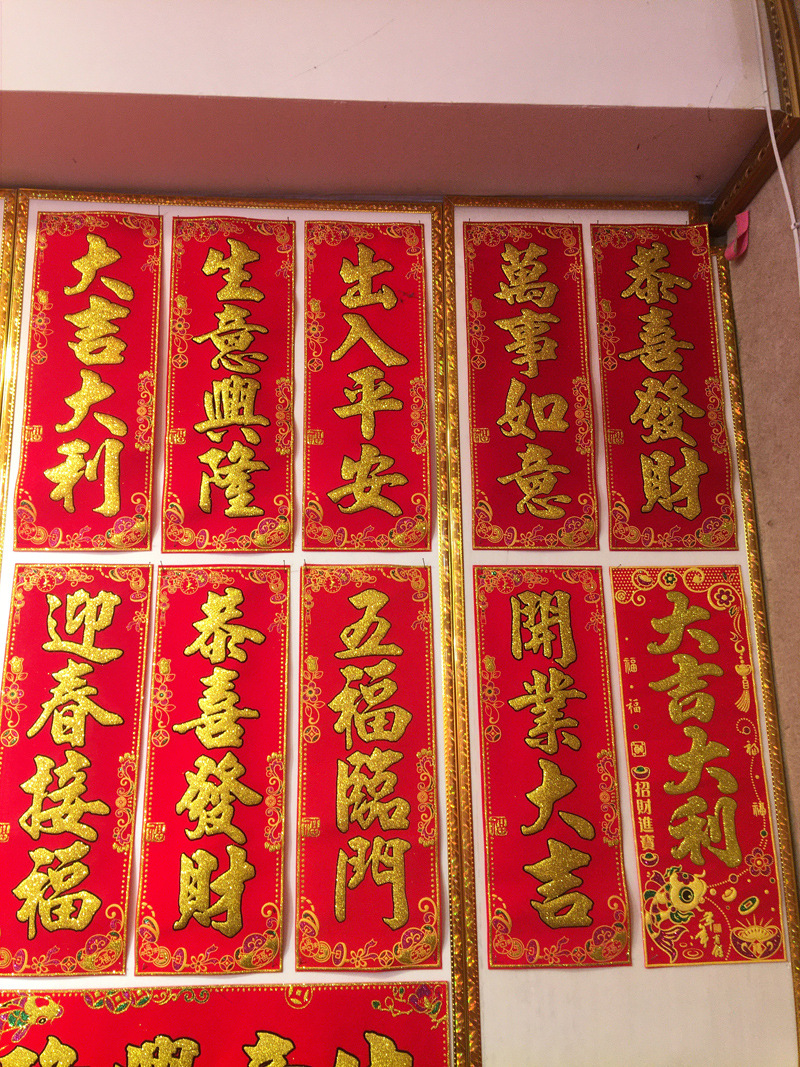 大吉大利
生意興隆
出入平安
萬事如意
恭喜發財
迎春接福
恭喜發財
五福臨門
開業大吉
大吉大利
福
福
福
福
招財進寶